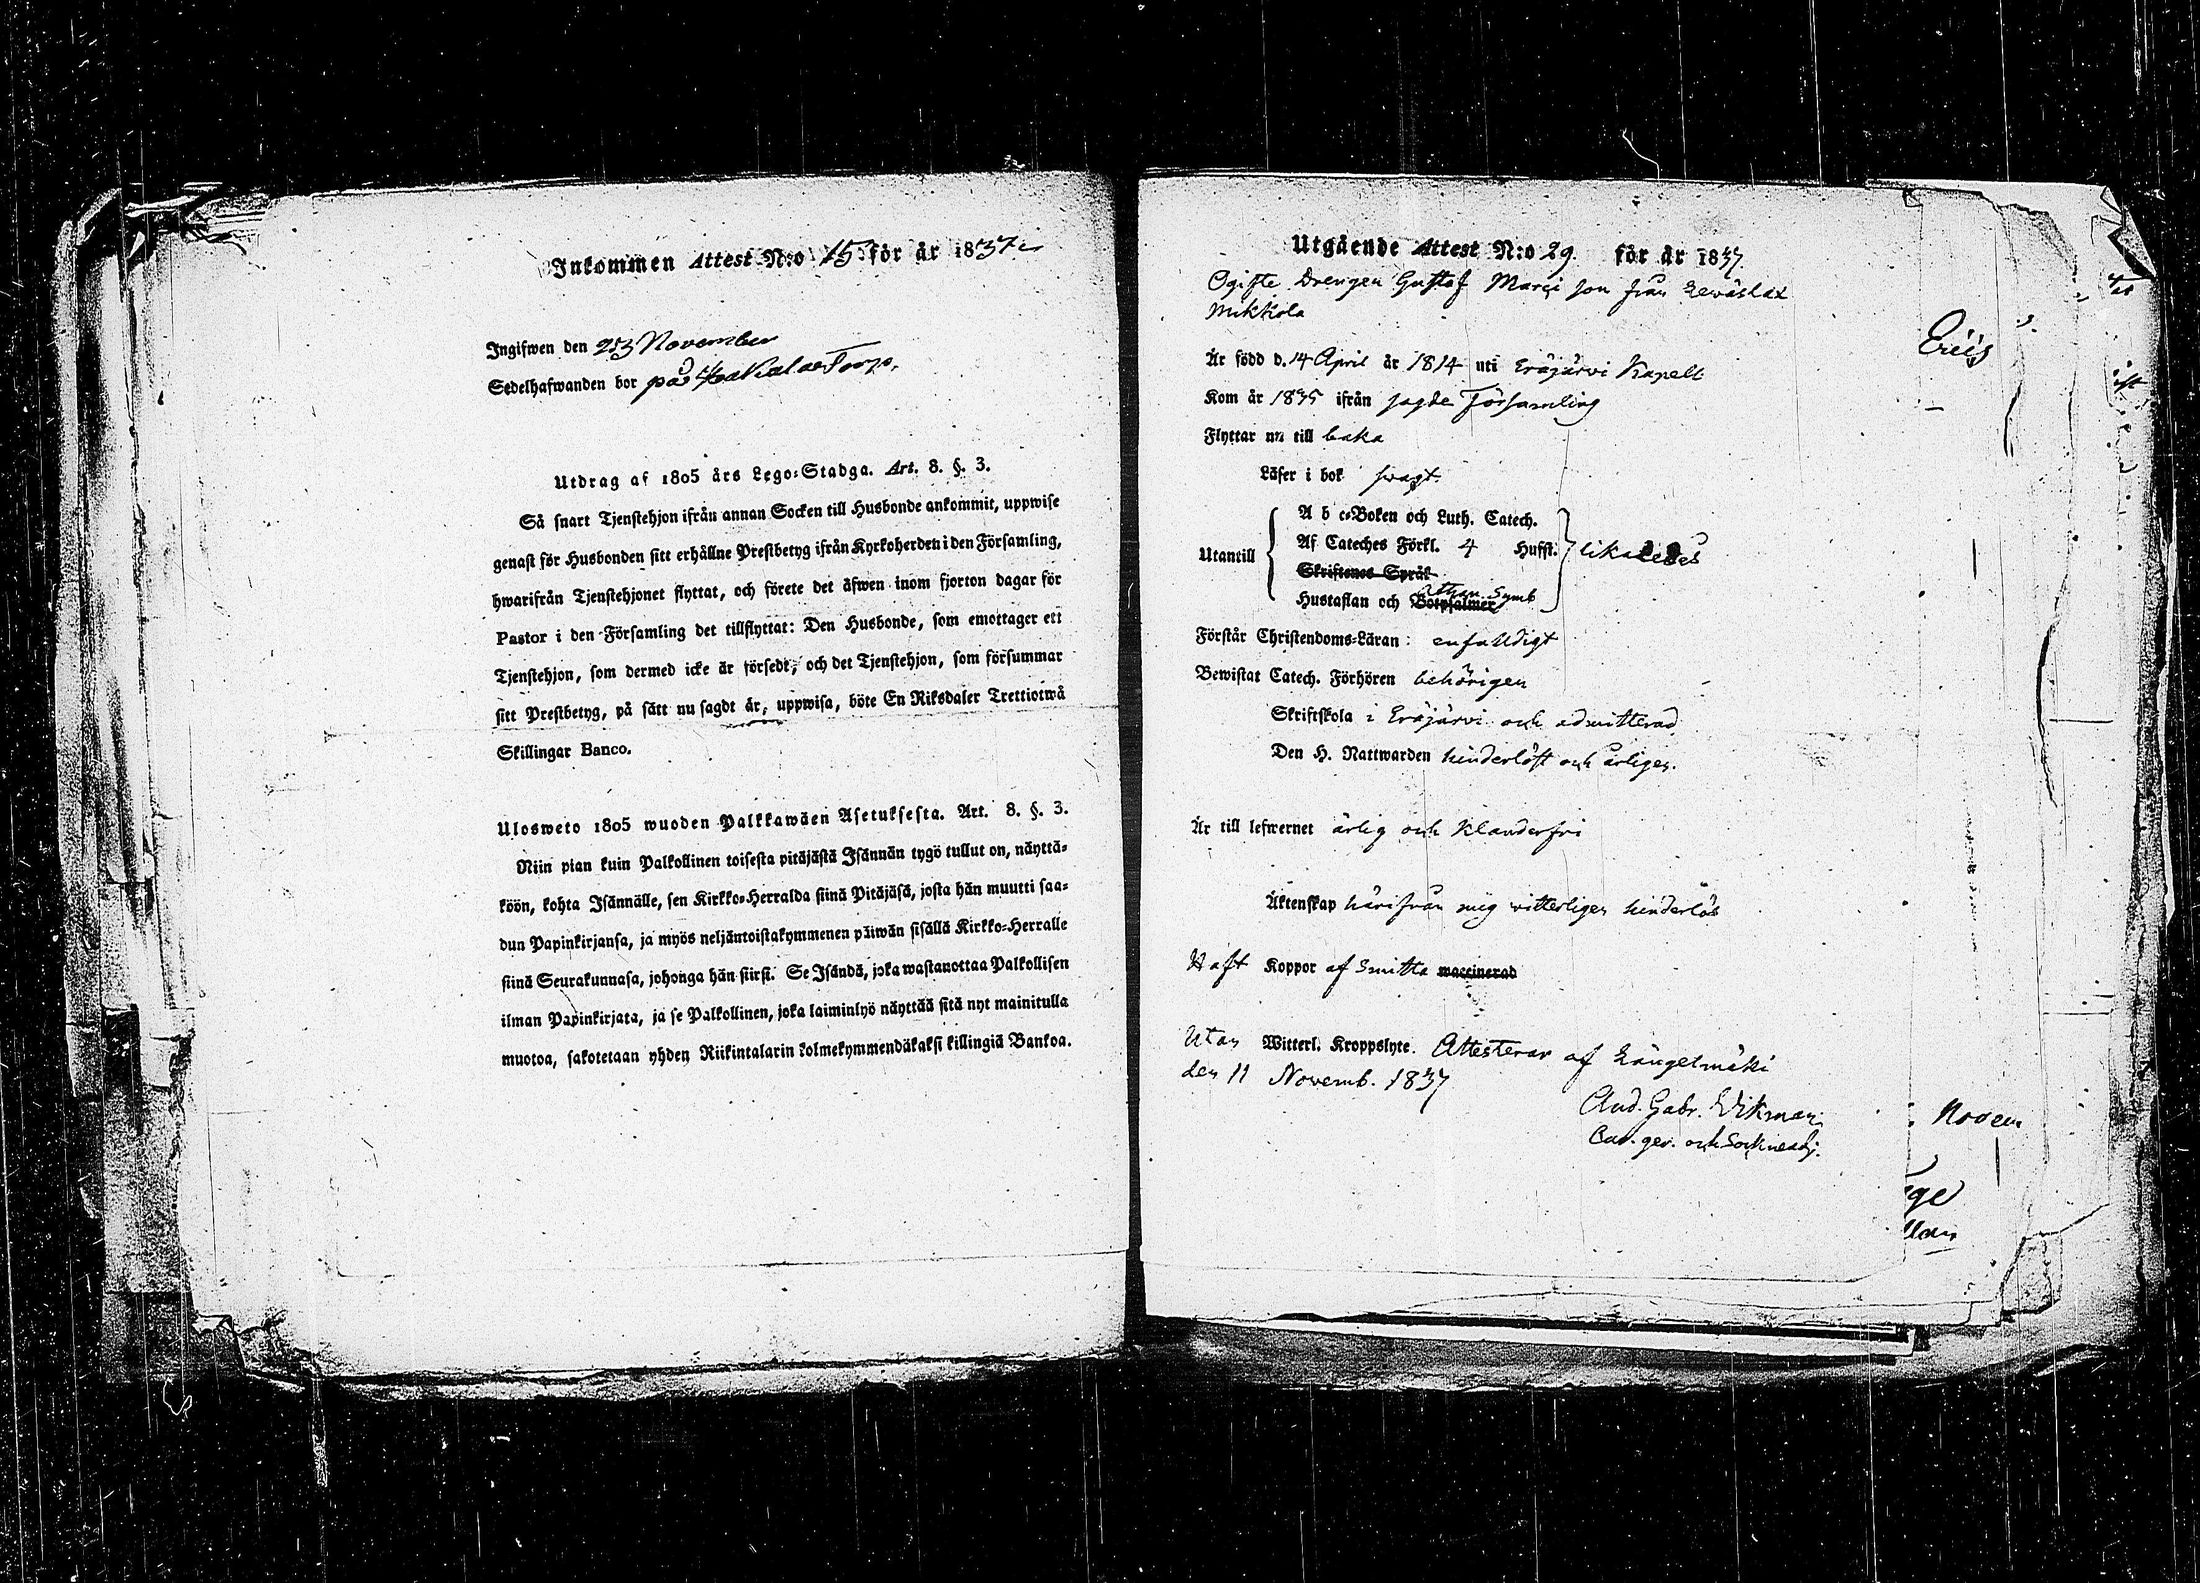 Inkommen Attest N:o 15 för år 1837
Ingifwen den 23 November
Sedelhafwanden bor på Torp.
Utdrag af 1805 års Lego-Stadga. Art. 8. §. 3.
Så snart Tjenstehjon ifrån annan Socken till Husbonde ankommit, uppwise
genast för Husbonden sitt erhållne Prestbetyg ifrån Kyrkoherden i den Församling,
hwarifrån Tjenstehjonet flyttat, och förete det äfwen inom fjorton dagar för
Pastor i den Församling det tillflyttat: Den Husbonde, som emottager ett
Tjenstehjon, som dermed icke är försedt, och det Tjenstehjon, som försummar
sitt Prestbetyg, på sätt nu sagdt är, uppwisa, böte En Riksdaler Trettiotwå
Skillingar Banco.
Ulosweto 1805 wuoden Palkkawäen Asetuksesta. Art. 8. §. 3.
Niin pian kuin Palkollinen toisesta pitäjästä Isännän tygö tullut on, näyttä-
köön, kohta Isännälle, sen Kirkko-Herralda siinä Pitäjäsä, josta hän muutti saa-
dun Papinkirjansa, ja myös neljäntoistakymmenen päiwän sisällä Kirkko-Herralle
siinä Seurakunnasa, johonga hän siirsi. Se Isändä, joka wastanottaa Palkollisen
ilman Papinkirjata, ja se Palkollinen, joka laiminlyö näyttää sitä nyt mainitulla
muotoa, sakotetaan yhden Riikintalarin kolmekymmendäkaksi killingiä Bankoa.
Utgående Attest N:o 29. för år 1837.
Ogifte Drengen Gustaf Marci son från Lewäslax
Mikkola
Är född d. 14 April år 1814 uti Eräjärvi Kapell
Kom år 1835 ifrån sagde Församling
Flyttar nu till baka
Läser i bok swagt.
A b c-Boken och Luth. Catech.
Utantill Af Cateches Förkl. 4 Hufst. likaledes
Skriftenes Språk
Athan. Symb
Hustaflan och Botpsalmer
Förstår Christendoms-Läran: enfaldigt
Bewistat Catech. Förhören behörigen
Skriftskola i Eräjärvi och admitterad
Den H. Nattwarden hinderlöst och årligen.
Är till lefwernet ärlig och klanderfri
Äktenskap härifrån mig vitterligen hinderlös
Haft Koppor af Smitta waccinerad
Utan Witterl. Kroppslyte. Attesterar af Längelmäki
den 11 Novemb. 1837
And. Gabr. Wikman
och Sockneadj.
Novem